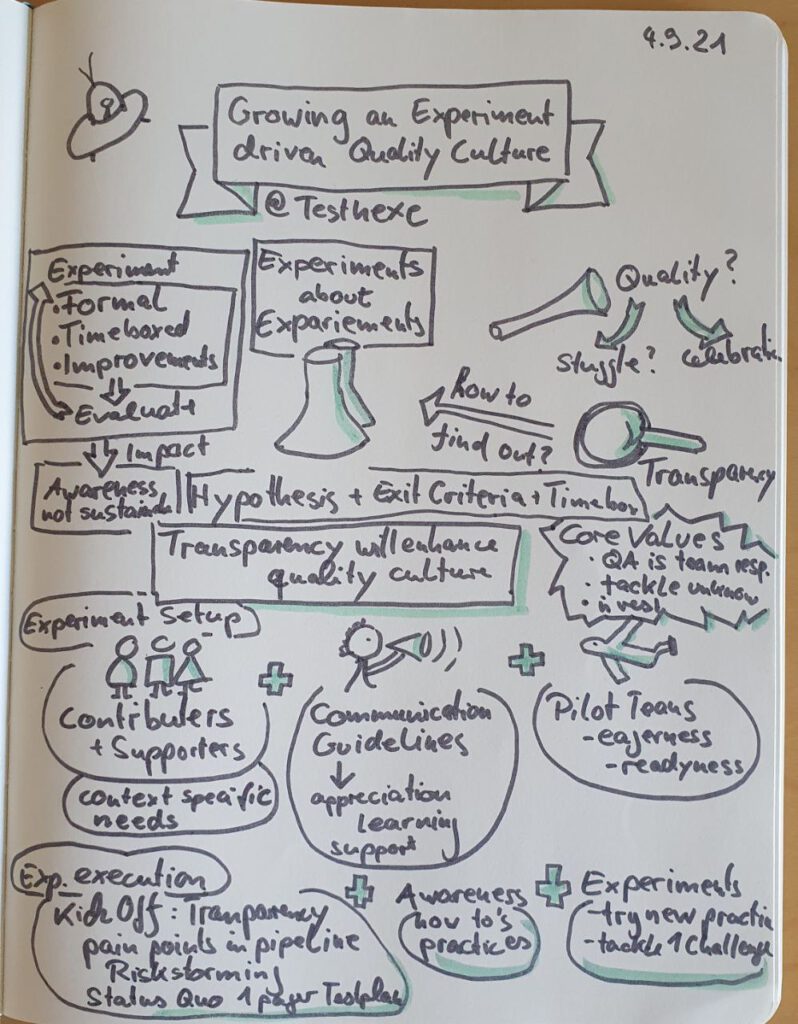 4.9.21
Growing an Experiment
driven Quality Culture
@Testhexe
Experiment
• Formal
• Timeboxed
• Improvements
Evaluate
Experiments
about
Expariements
Quality?
Stuggle?
Celebratio
How to
find out?
Transparency
Impact
Awareness
not sustainable
Hypothesis + Exit Criteria + Timebox
Transparency will enhance
quality culture
Core Values
• QA is team resp.
• tackle unknow
• invest
Experiment Setup
Contributers
+ Supporters
context specific
needs
+
Communication
Guidelines
appreciation
Learning
support
+
Pilot Teams
- eagerness
- readyness
Exp. execution
Kick Off: Tranparency
pain points in pipeline
Riskstorming
Status Quo 1 pager Testplan
+
Awareness
how to's
practices
+
Experiments
- try new practi
- tackle 1 Challenge